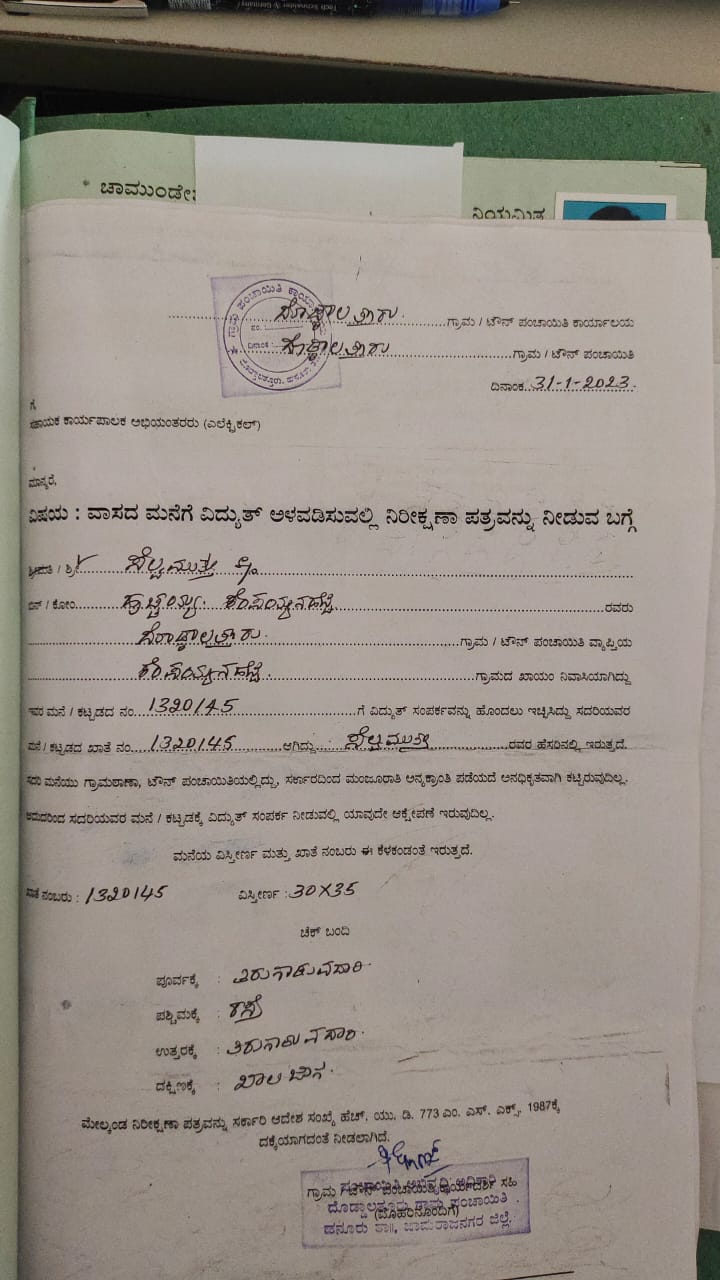 Tech Schneider Germany
ಚಾಮುಂಡೇ
ನಿಯಮಿತ
ಗ್ರಾಮ ಪಂಚಾಯಿತಿ
ನಂ.
ದಿನಾಂಕ :
ದೊಡ್ಡಾಲತ್ತೂರು ಗ್ರಾಮ / ಟೌನ್ ಪಂಚಾಯಿತಿ ಕಾರ್ಯಾಲಯ
ದೊಡ್ಡಾಲತ್ತೂರು ಗ್ರಾಮ / ಟೌನ್ ಪಂಚಾಯಿತಿ
ದಿನಾಂಕ 31-1-2023.
ಗೆ,
ಸಹಾಯಕ ಕಾರ್ಯಪಾಲಕ ಅಭಿಯಂತರರು (ಎಲೆಕ್ಟ್ರಿಕಲ್)
ಮಾನ್ಯರೆ,
ವಿಷಯ : ವಾಸದ ಮನೆಗೆ ವಿದ್ಯುತ್ ಅಳವಡಿಸುವಲ್ಲಿ ನಿರೀಕ್ಷಣಾ ಪತ್ರವನ್ನು ನೀಡುವ ಬಗ್ಗೆ
ಶ್ರೀಮತಿ / ಶ್ರೀ ಸೆಲ್ವಮುತ್ತು
ಬಿನ್ / ಕೋಂ ರವರು
ದೊಡ್ಡಾಲತ್ತೂರು ಗ್ರಾಮ / ಟೌನ್ ಪಂಚಾಯಿತಿ ವ್ಯಾಪ್ತಿಯ
ಗ್ರಾಮದ ಖಾಯಂ ನಿವಾಸಿಯಾಗಿದ್ದು
ಇವರ ಮನೆ / ಕಟ್ಟಡದ ನಂ 1320145 ಗೆ ವಿದ್ಯುತ್ ಸಂಪರ್ಕವನ್ನು ಹೊಂದಲು ಇಚ್ಛಿಸಿದ್ದು ಸದರಿಯವರ
ಮನೆ / ಕಟ್ಟಡದ ಖಾತೆ ನಂ 1320145 ಆಗಿದ್ದು ಸೆಲ್ವಮುತ್ತು ರವರ ಹೆಸರಿನಲ್ಲಿ ಇರುತ್ತದೆ.
ಸದರಿ ಮನೆಯು ಗ್ರಾಮಠಾಣಾ, ಟೌನ್ ಪಂಚಾಯಿತಿಯಲ್ಲಿದ್ದು, ಸರ್ಕಾರದಿಂದ ಮಂಜೂರಾತಿ ಅನ್ಯಕ್ರಾಂತಿ ಪಡೆಯದೆ ಅನಧಿಕೃತವಾಗಿ ಕಟ್ಟಿರುವುದಿಲ್ಲ.
ಆದುದರಿಂದ ಸದರಿಯವರ ಮನೆ / ಕಟ್ಟಡಕ್ಕೆ ವಿದ್ಯುತ್ ಸಂಪರ್ಕ ನೀಡುವಲ್ಲಿ ಯಾವುದೇ ಆಕ್ಷೇಪಣೆ ಇರುವುದಿಲ್ಲ.
ಮನೆಯ ವಿಸ್ತೀರ್ಣ ಮತ್ತು ಖಾತೆ ನಂಬರು ಈ ಕೆಳಕಂಡಂತೆ ಇರುತ್ತದೆ.
ಖಾತೆ ನಂಬರು : 1320145 ವಿಸ್ತೀರ್ಣ : 30X35
ಚೆಕ್ ಬಂದಿ
ಪೂರ್ವಕ್ಕೆ :
ಪಶ್ಚಿಮಕ್ಕೆ : ರಸ್ತೆ
ಉತ್ತರಕ್ಕೆ :
ದಕ್ಷಿಣಕ್ಕೆ : ಖಾಲಿ ಜಾಗ.
ಮೇಲ್ಕಂಡ ನಿರೀಕ್ಷಣಾ ಪತ್ರವನ್ನು ಸರ್ಕಾರಿ ಆದೇಶ ಸಂಖ್ಯೆ ಹೆಚ್. ಯು. ಡಿ. 773 ಎಂ. ಎಸ್. ಎಕ್ಸ್. 1987ಕ್ಕೆ
ದಕ್ಕೆಯಾಗದಂತೆ ನೀಡಲಾಗಿದೆ.
ಪಂಚಾಯಿತಿ ಅಭಿವೃದ್ಧಿ ಅಧಿಕಾರಿ
ಗ್ರಾಮ / ಟೌನ್ ಪಂಚಾಯಿತಿ ಕಾರ್ಯದರ್ಶಿ ಸಹಿ
ದೊಡ್ಡಾಲತ್ತೂರು ಗ್ರಾಮ ಪಂಚಾಯಿತಿ
(ಮೊಹರಿನೊಂದಿಗೆ)
ಹನೂರು ತಾ॥, ಚಾಮರಾಜನಗರ ಜಿಲ್ಲೆ.